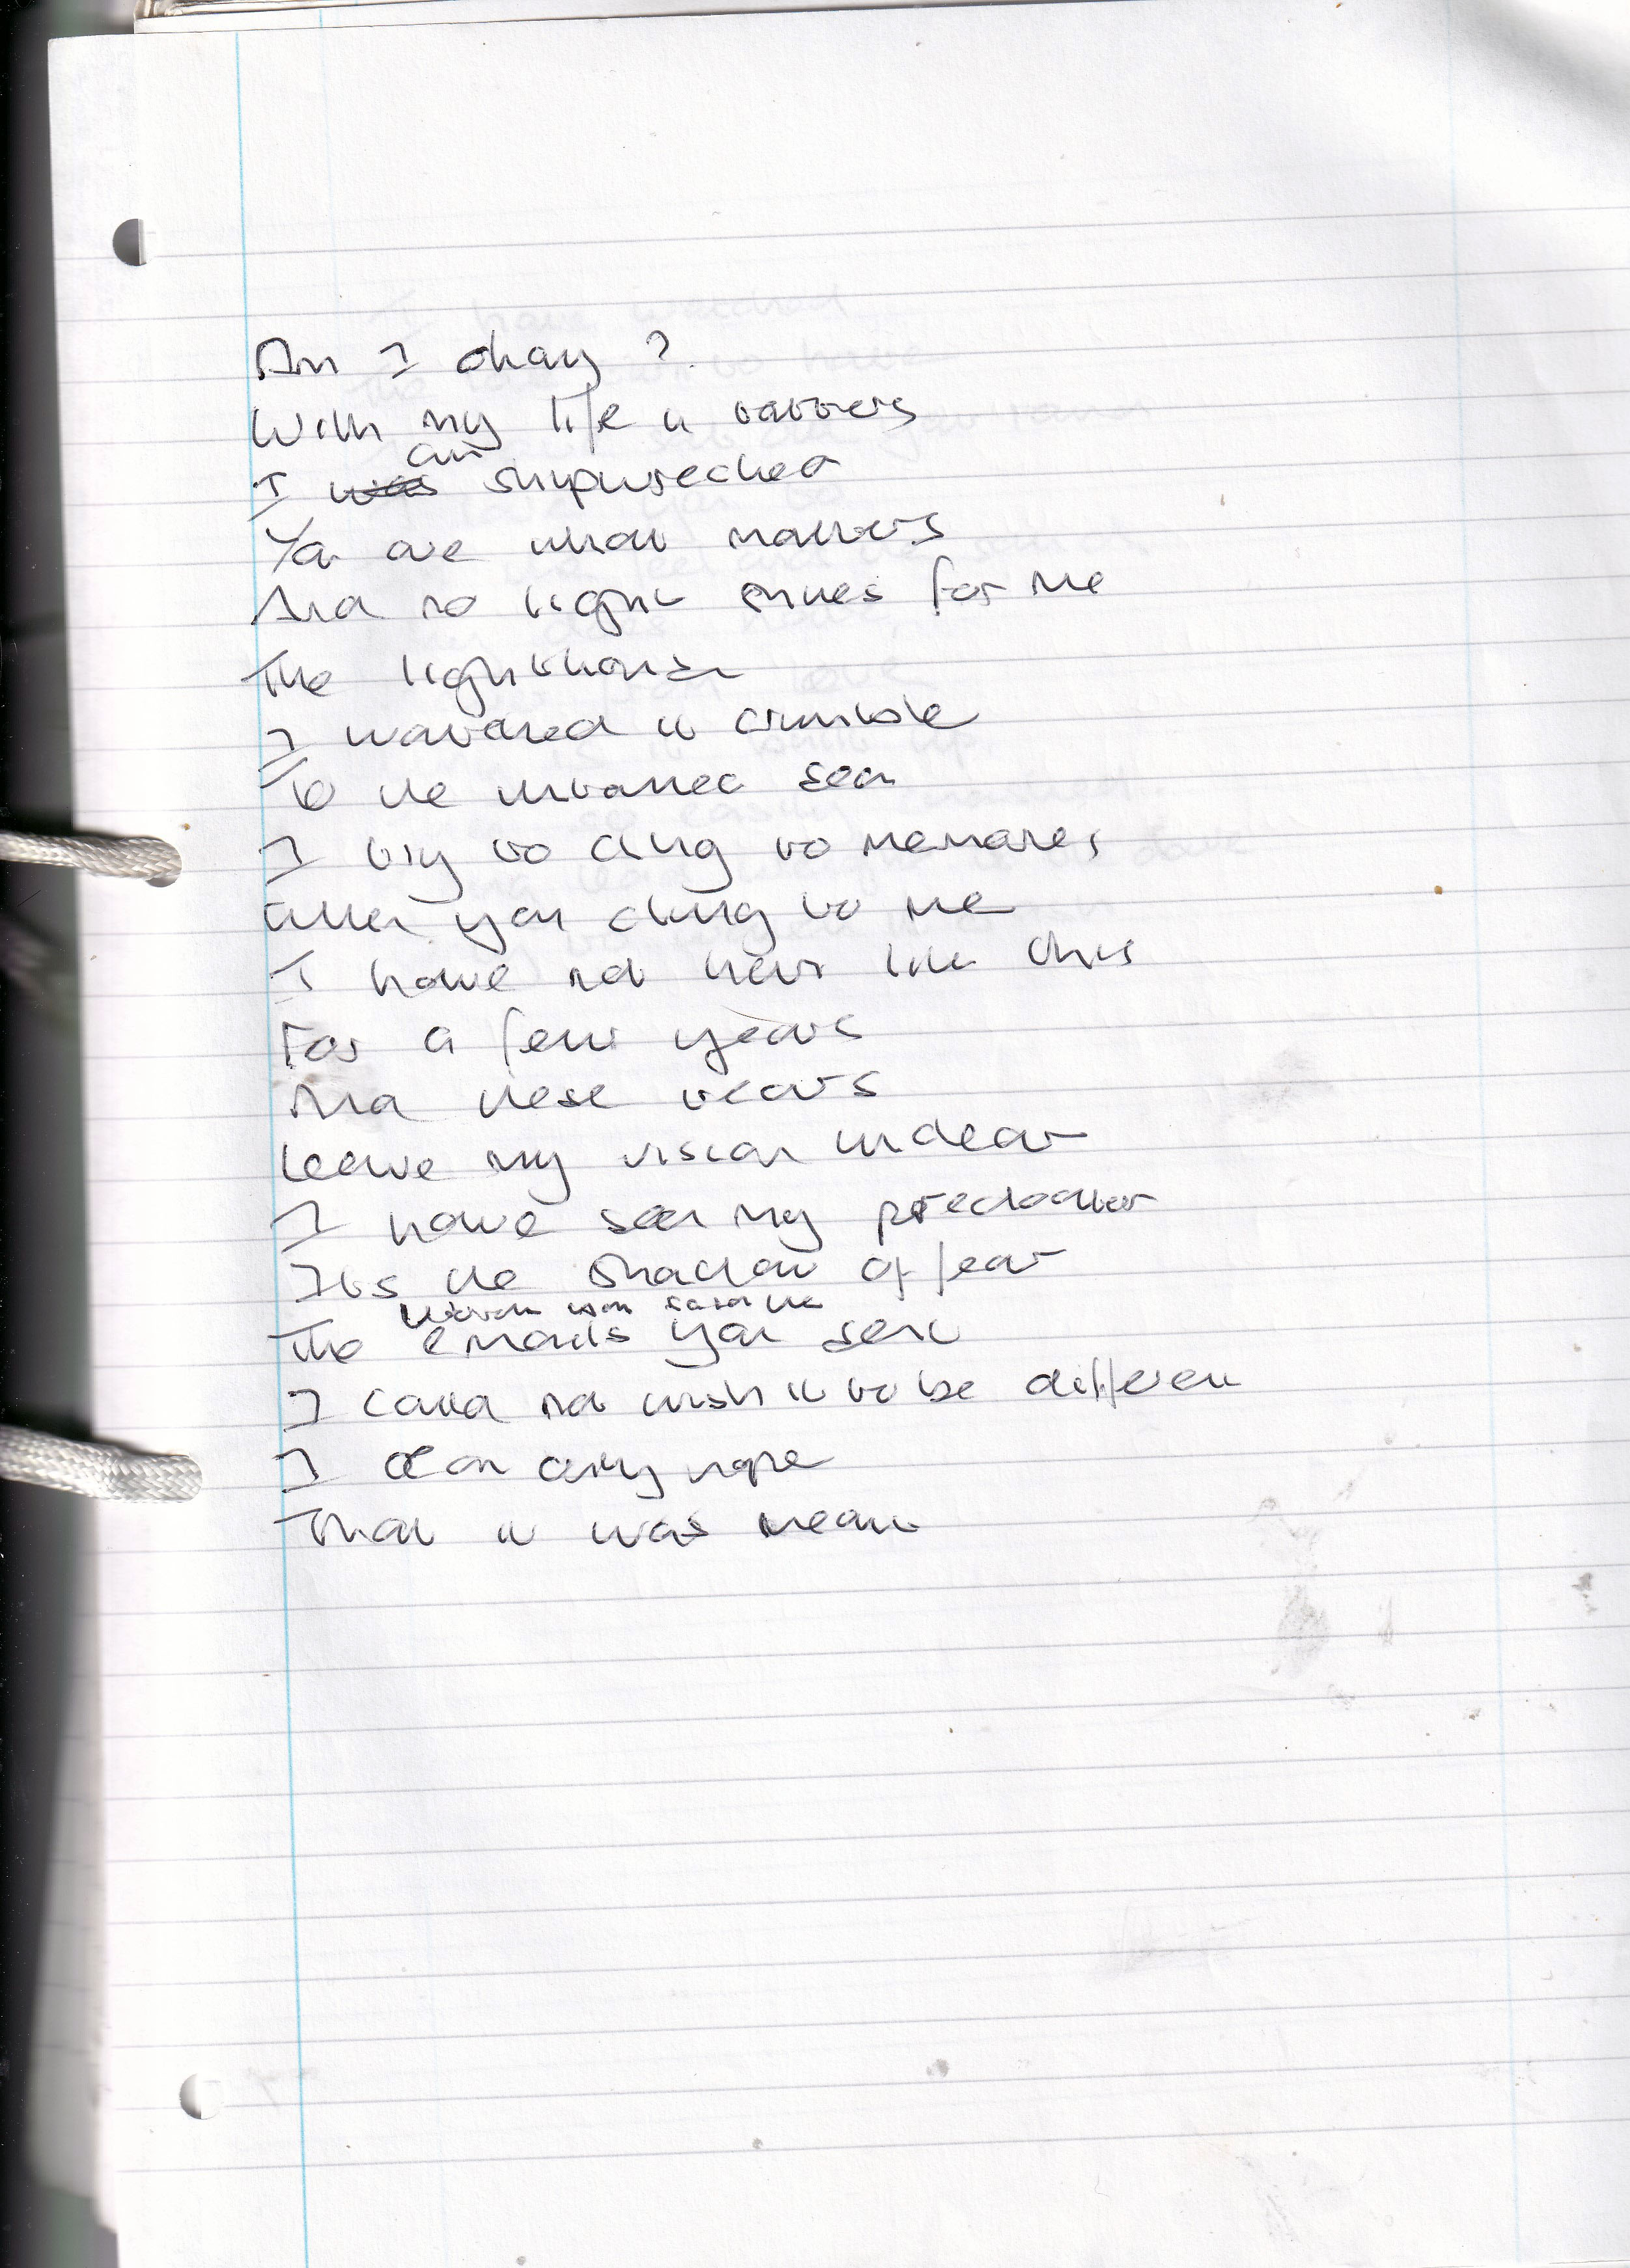 Am I okay?
With my life in tatters
I was am shipwrecked
You are what matters
And no light shines for me
The lighthouse
I watched it crumble
To the untamed sea
I try to cling to memories
When you clung to me
I have not been like this
For a few years
And these tears
Leave my vision unclear
I have seen my predecator
Its the shadow of fear
The emails you sent
I could not wish it to be different
I can only hope
That it was meant